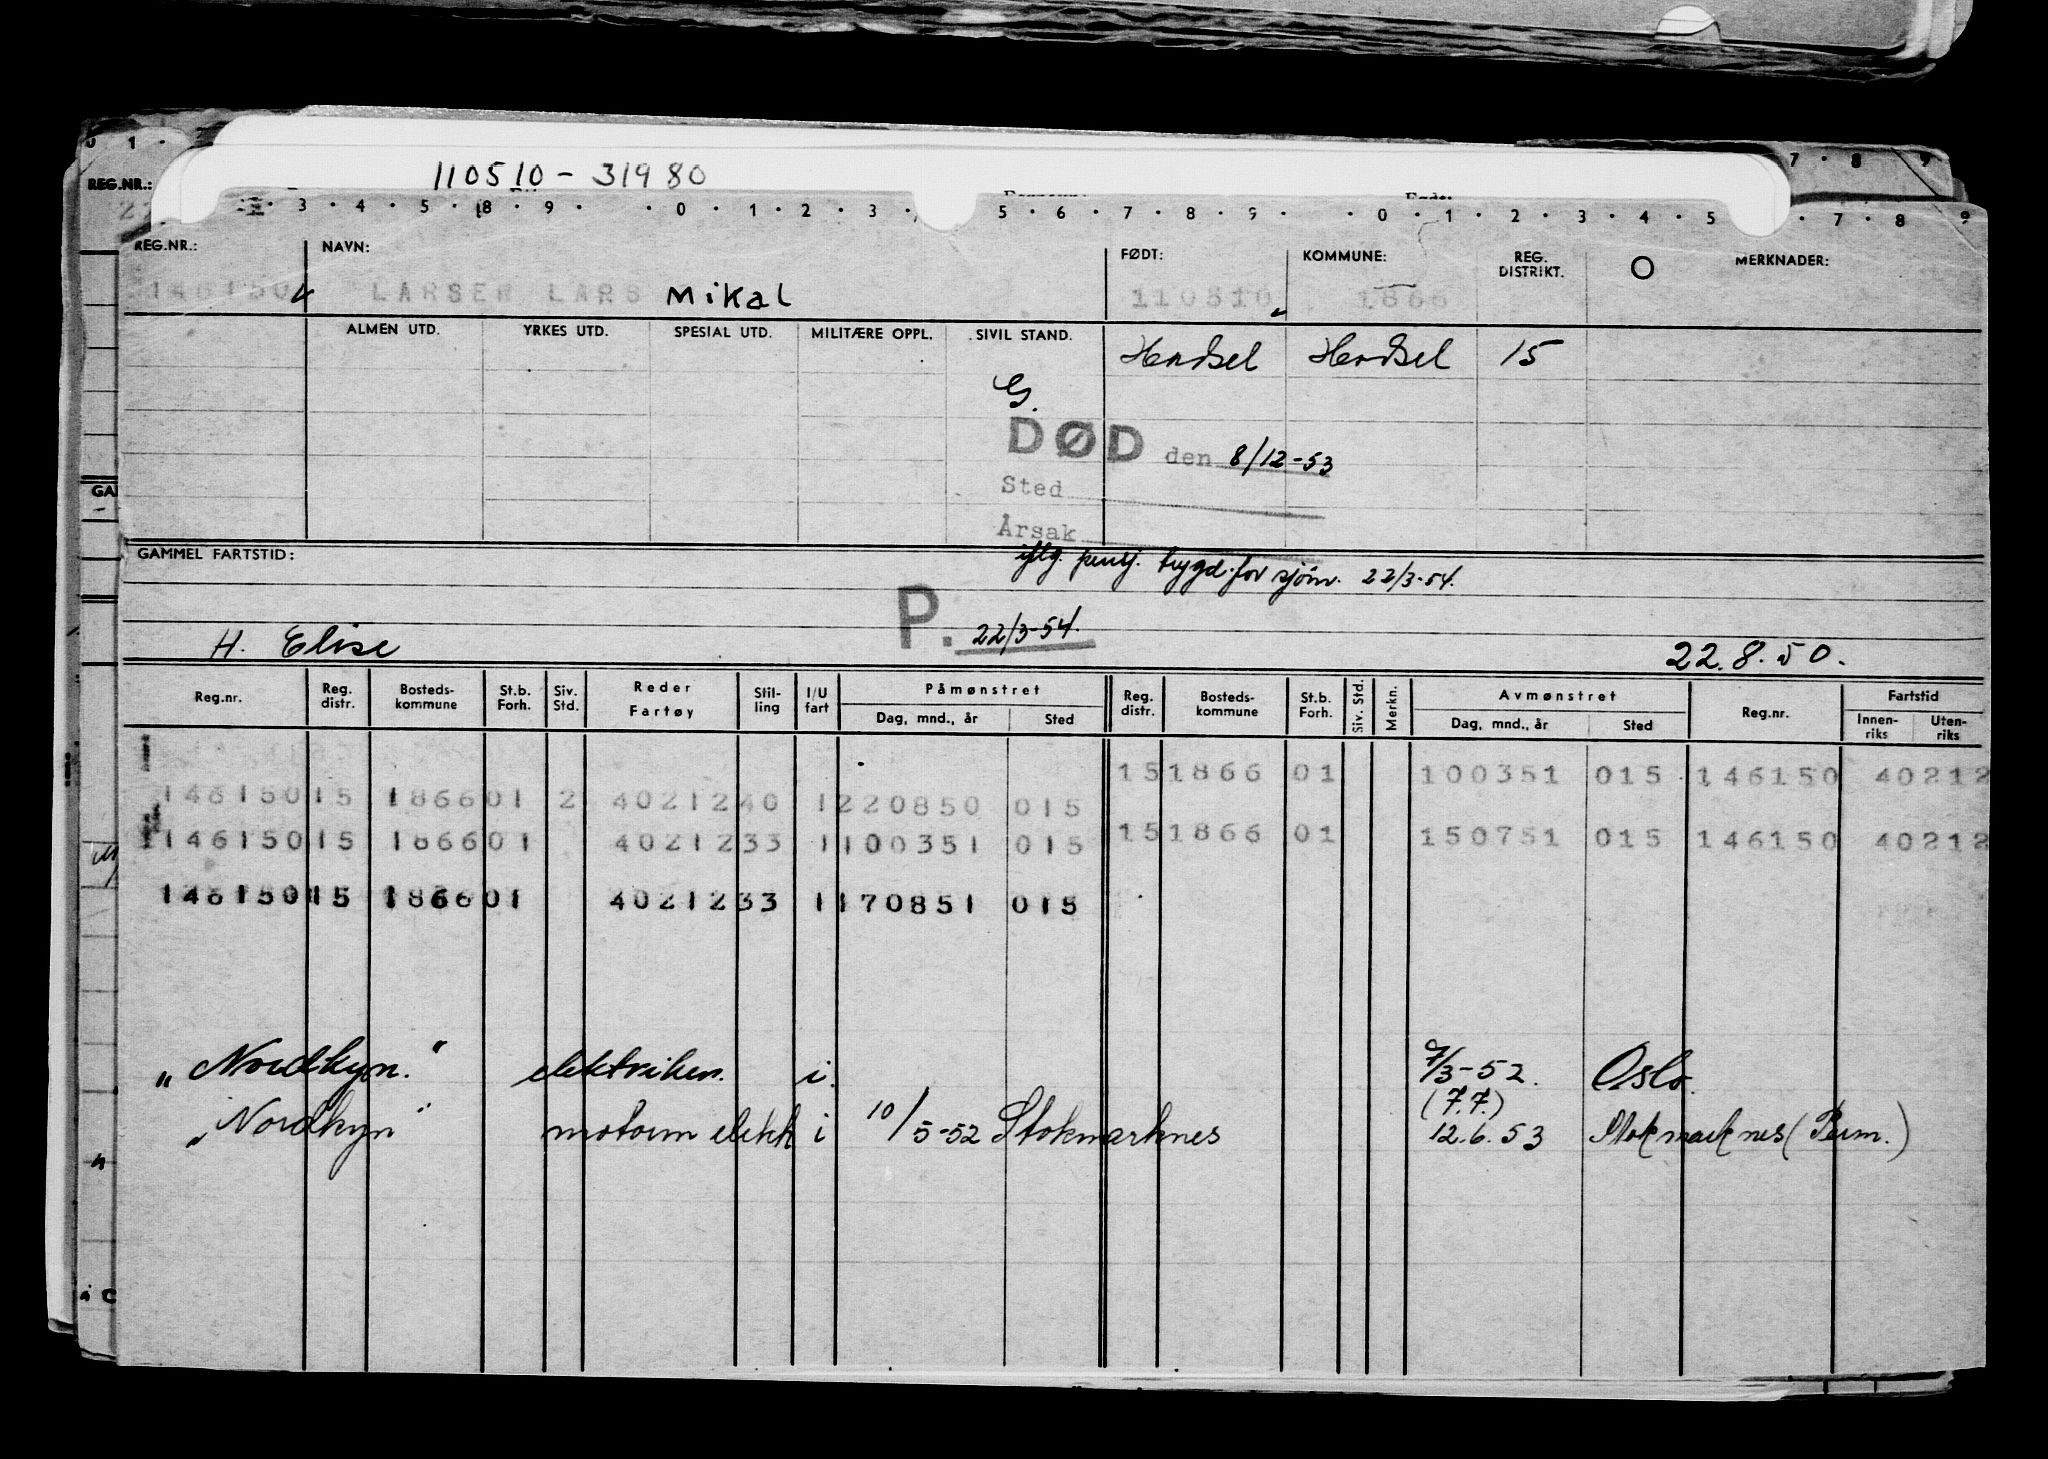 110510-31980
0 1 .
7 . 8 9
REG.NR.:
3 . 4 . 5 . 8 . 9 . . 0 . 1 . 2 . 3 . 5 . 6 . 7 . 8 . 9 . . 0 . 1 . 2 . 3 . 4 . 5 . 7 . 8 9
REG.NR.: NAVN: FØDT: KOMMUNE: REG. DISTRIKT. MERKNADER:
146150 LARSEN LARS Mikal 110510 1866
ALMEN UTD. YRKES UTD. SPESIAL UTD. MILITÆRE OPPL. SIVIL STAND. Hadsel Hadsel 15
G.
DØD den 8/12-53
Sted
Årsak
GAMMEL FARTSTID:
iflg. pensj. trygd. for sjøm. 22/3-54.
P. 22/3-54.
H. Elise 22.8.50.
Reg.nr. Reg. distr. Bosteds-kommune St.b. Forh. Siv. Std. Reder Fartøy Stil-ling I/U fart Påmønstret Reg. distr. Bosteds-kommune St.b. Forh. Siv. Std. Merkn. Avmønstret Reg.nr. Fartstid
Dag, mnd., år Sted Dag, mnd., år Sted Innen-riks Uten-riks
15 1866 01 100351 015 146150 40212
146150 15 1866 01 2 40212 40 1 220850 015
15 1866 01 150751 015 146150 40212
146150 15 1866 01 40212 33 1 100351 015
146150 15 1866 01 40212 33 1 170851 015
"Nordkyn." elektriker. i. 7/3-52. Oslo.
(7.7.)
"Nordkyn" motorm elekk i 10/5-52 Stokmarknes 12.6.53 Stokmarknes (Perm.)